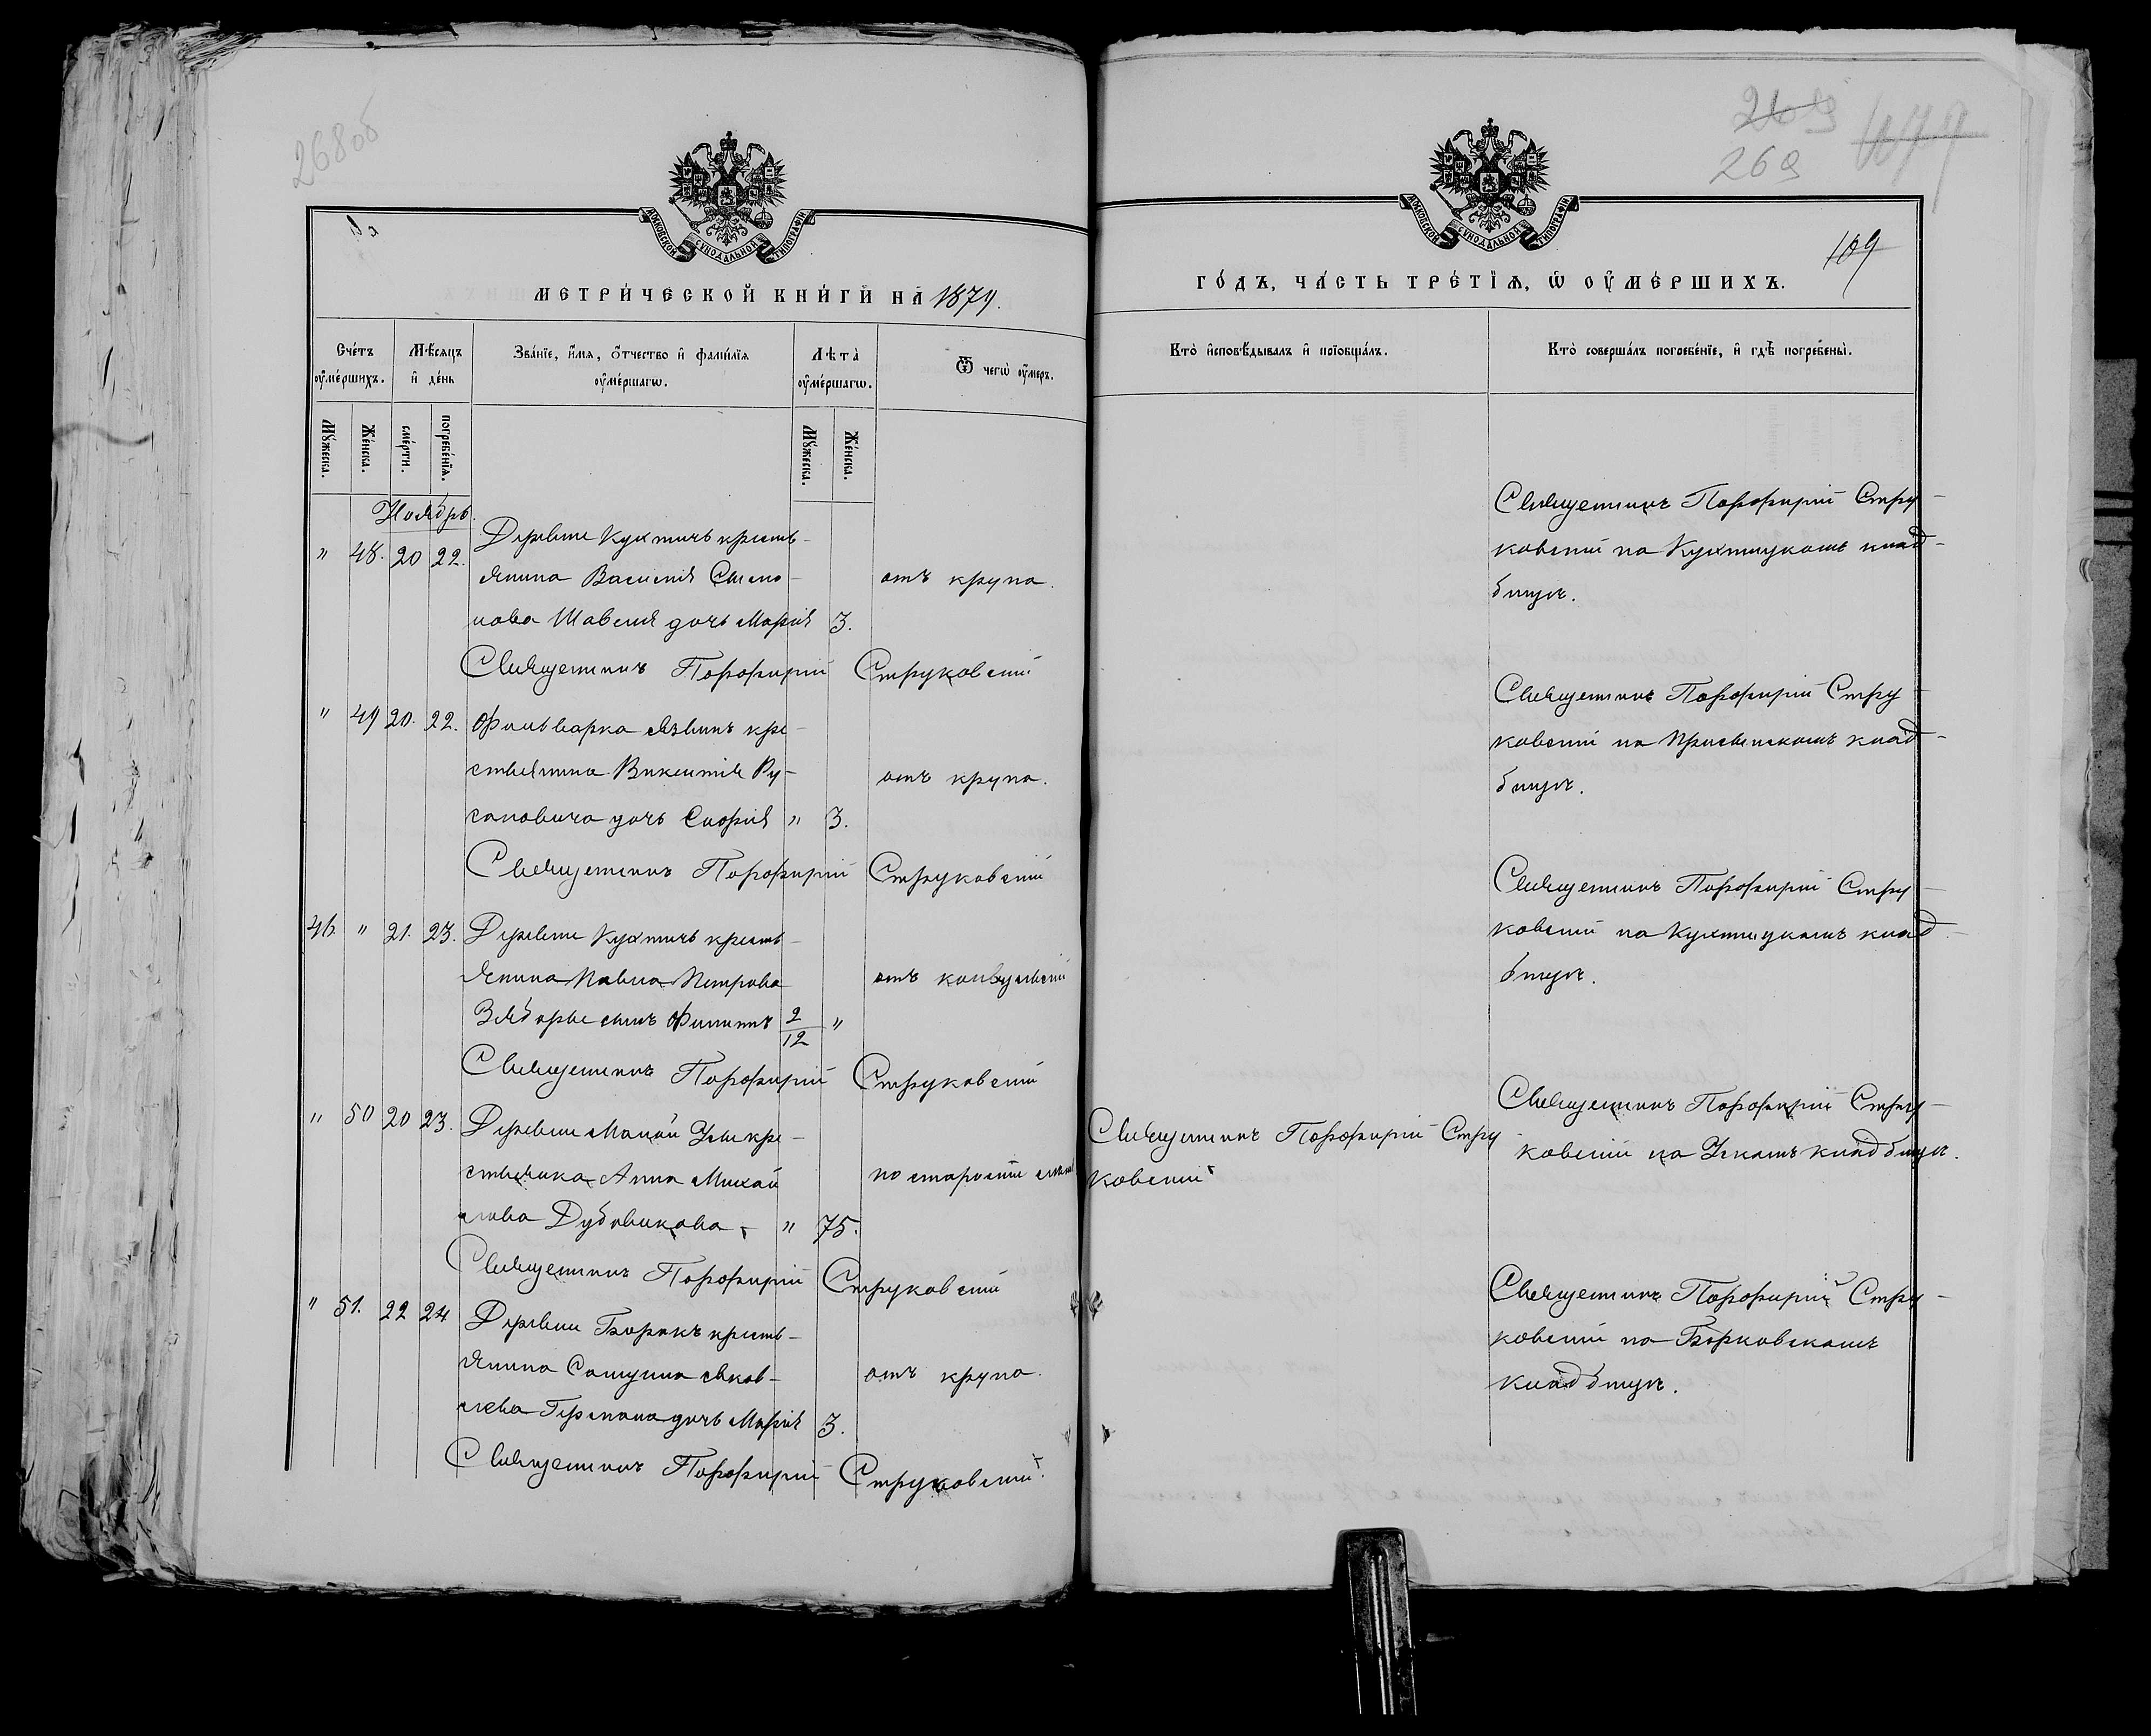 268об
МОСКОВСКОЙ СѴНОДАЛЬНОЙ ТИПОГРАФІИ
МЕТРИ́ЧЕСКОЙ КНИ́ГИ НА 1879.
Сче́тъ ᲂу҆ме́ршихъ.
Мꙋ́жеска.
Же́нска.
Мѣ́сяцъ и҆ де́нь
сме́рти.
погребе́нїѧ.
Зва́нїе, и҆́мѧ, ѻ҆́тчество и҆ фами́лїѧ
ᲂу҆ме́ршагѡ.
Лѣ̑та̀
ᲂу҆ме́ршагѡ.
Мꙋ́жеска.
Же́нска.
Ѿ чегѡ̀ ᲂу҆́меръ.
Ноябрь.
" 48. 20 22. Деревни Кухтичъ кресть-
янина Василія Симо- отъ крупа.
нова Шавеля дочь Марія 3.
Священникъ Порфирій Струковскій
" 49 20. 22. Фольварка Язвинъ кре-
стьянина Викентія Ру- отъ крупа.
сановича дочь Софія " 3.
Священникъ Порфирій Струковскій
46. " 21. 23. Деревни Кухтичъ кресть-
янина Павла Петрова отъ конвульсій
сынъ Филиппъ 2/12 "
Священникъ Порфирій Струковскій
" 50 20 23. Деревни Малой Узды кре-
стьянка Анна Михай по старости
лова Дубовикова - " 75.
Священникъ Порфирій Струковскій
" 51. 22 24 Деревни Борокъ кресть-
янина Самуила Яков- отъ крупа.
лева Германа дочь Марія 3.
Священникъ Порфирій Струковскій.
269
269
109
МОСКОВСКОЙ СѴНОДАЛЬНОЙ ТИПОГРАФІИ
ГО́ДЪ, ЧА́СТЬ ТРЕ́ТЇѦ, Ѡ҆ ОУ҆МЕ́РШИХЪ.
Кто̀ и҆сповѣ́дывалъ и҆ прїѻбща́лъ.
Кто̀ соверша́лъ погребе́нїе, и҆ гдѣ̀ погребены̀.
Священникъ Порфирій Стру-
ковскій на Кухтицкомъ клад-
бищѣ.
Священникъ Порфирій Стру-
ковскій на клад-
бищѣ.
Священникъ Порфирій Стру-
ковскій на Кухтицкомъ клад-
бищѣ.
Священникъ Порфирій Стру-
ковскій
Священникъ Порфирій Стру-
ковскій на кладбищѣ.
Священникъ Порфирій Стру-
ковскій на Борковскомъ
кладбищѣ.